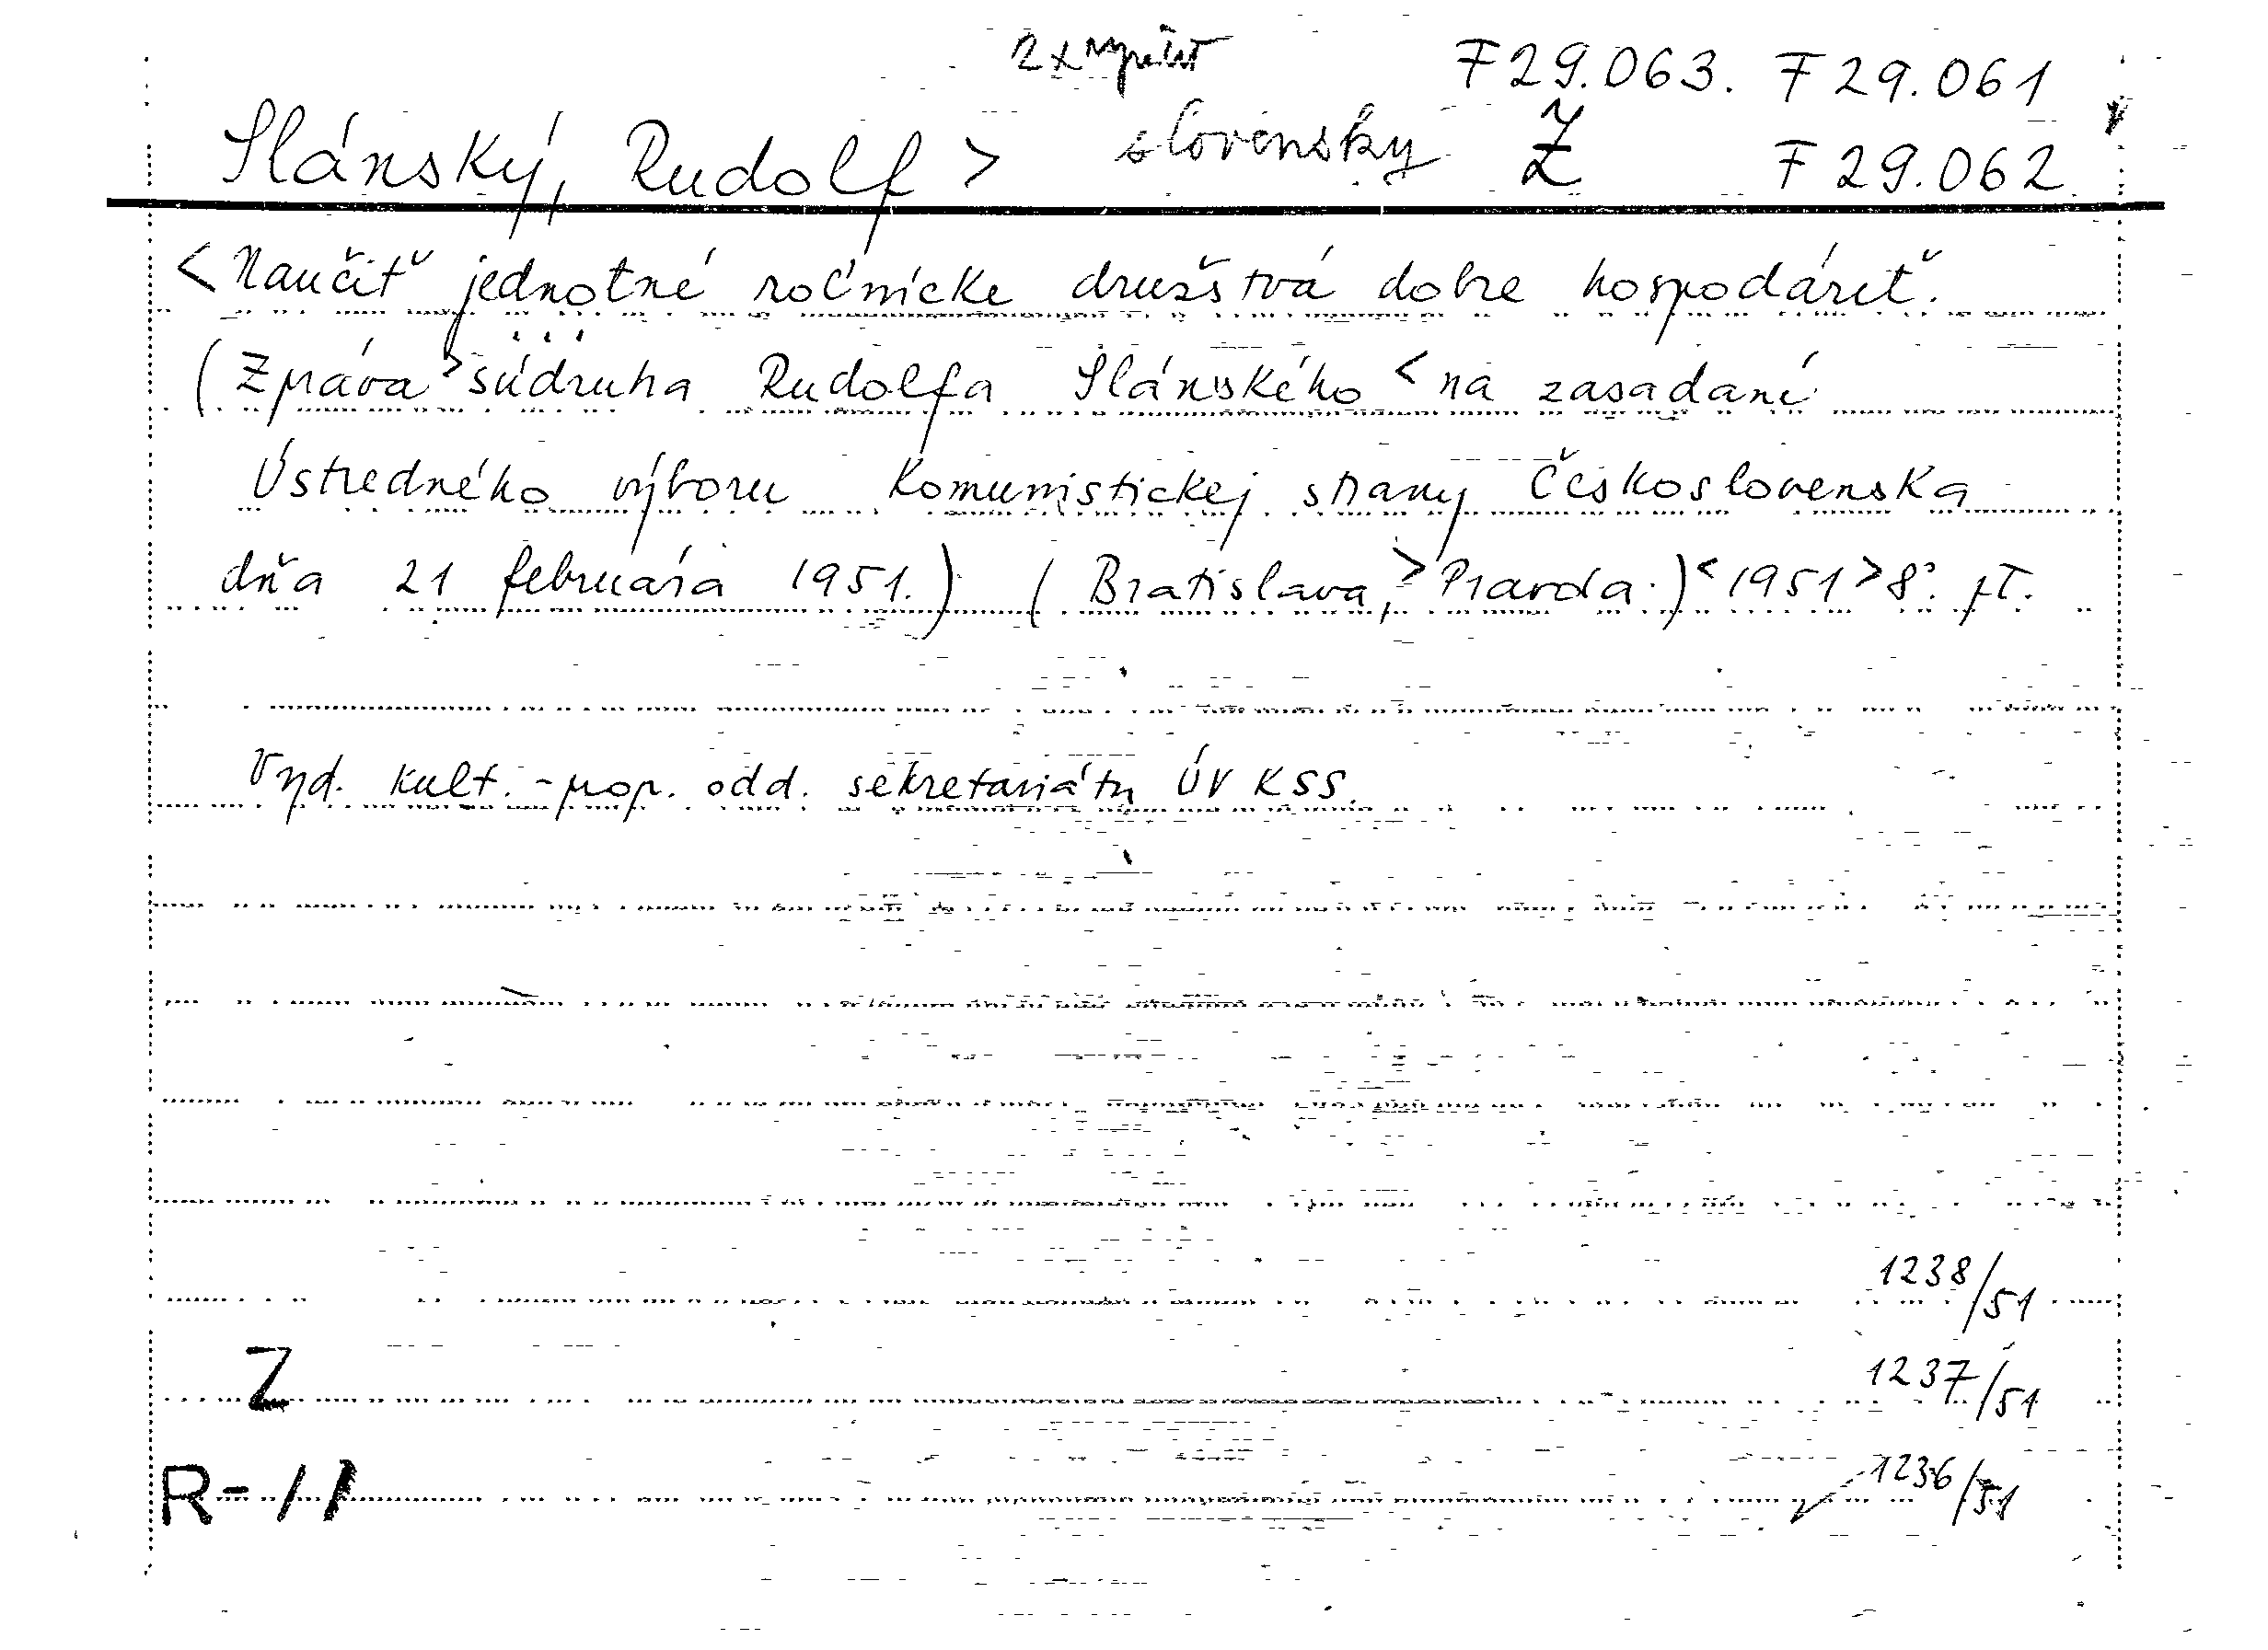 2x F 29.063. F 29.061
Slánský, Rudolf > slovensky Ž F 29.062
< Naučiť jednotné roľnícke družstvá dobre hospodáriť.
(Zpráva > súdruha Rudolfa Slánského < na zasadaní
Ústredného výboru Komunistickej strany Československa
dňa 21 februára 1951.) (Bratislava, > Pravda.) < 1951 > 8°.
Vyd. kult.-prop. odd. sekretariátu ÚV KSS.
1238/51
Z 1237/51
R-11 1236/51